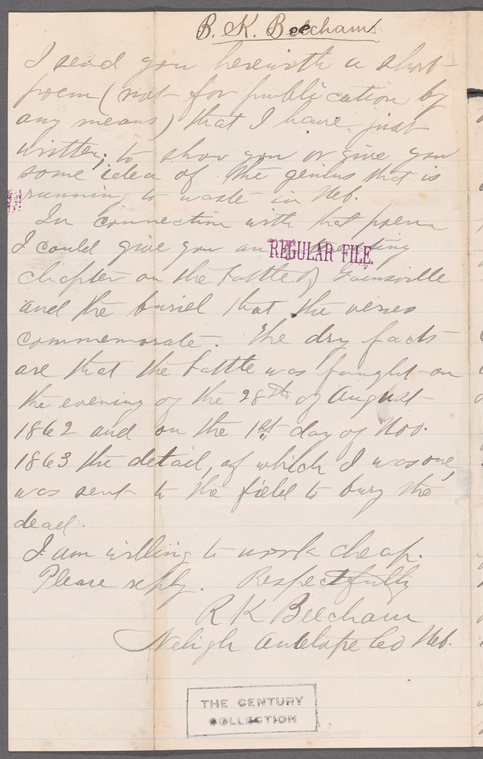 B. K. Beechams
I send you herewith a short
poem (not for publication by
any means) that I have just
written; to show you or give you
some idea of the genius that is
running to waste in Neb.
In connection with that poem
I could give you an
REGULAR FILE.
chapter on the battle of Gainsville
and the buriel that the verses
commemorate. The dry facts
are that the battle was faught on
the evening of the 28th of August
1862 and on the 1st day of Nov.
1863 the detail, of which I was one,
was sent to the field to bury the
dead.
I am willing to work cheap.
Please reply. Respectfully
R K Beecham
Neligh Antelope Co Neb.
THE CENTURY
COLLECTION